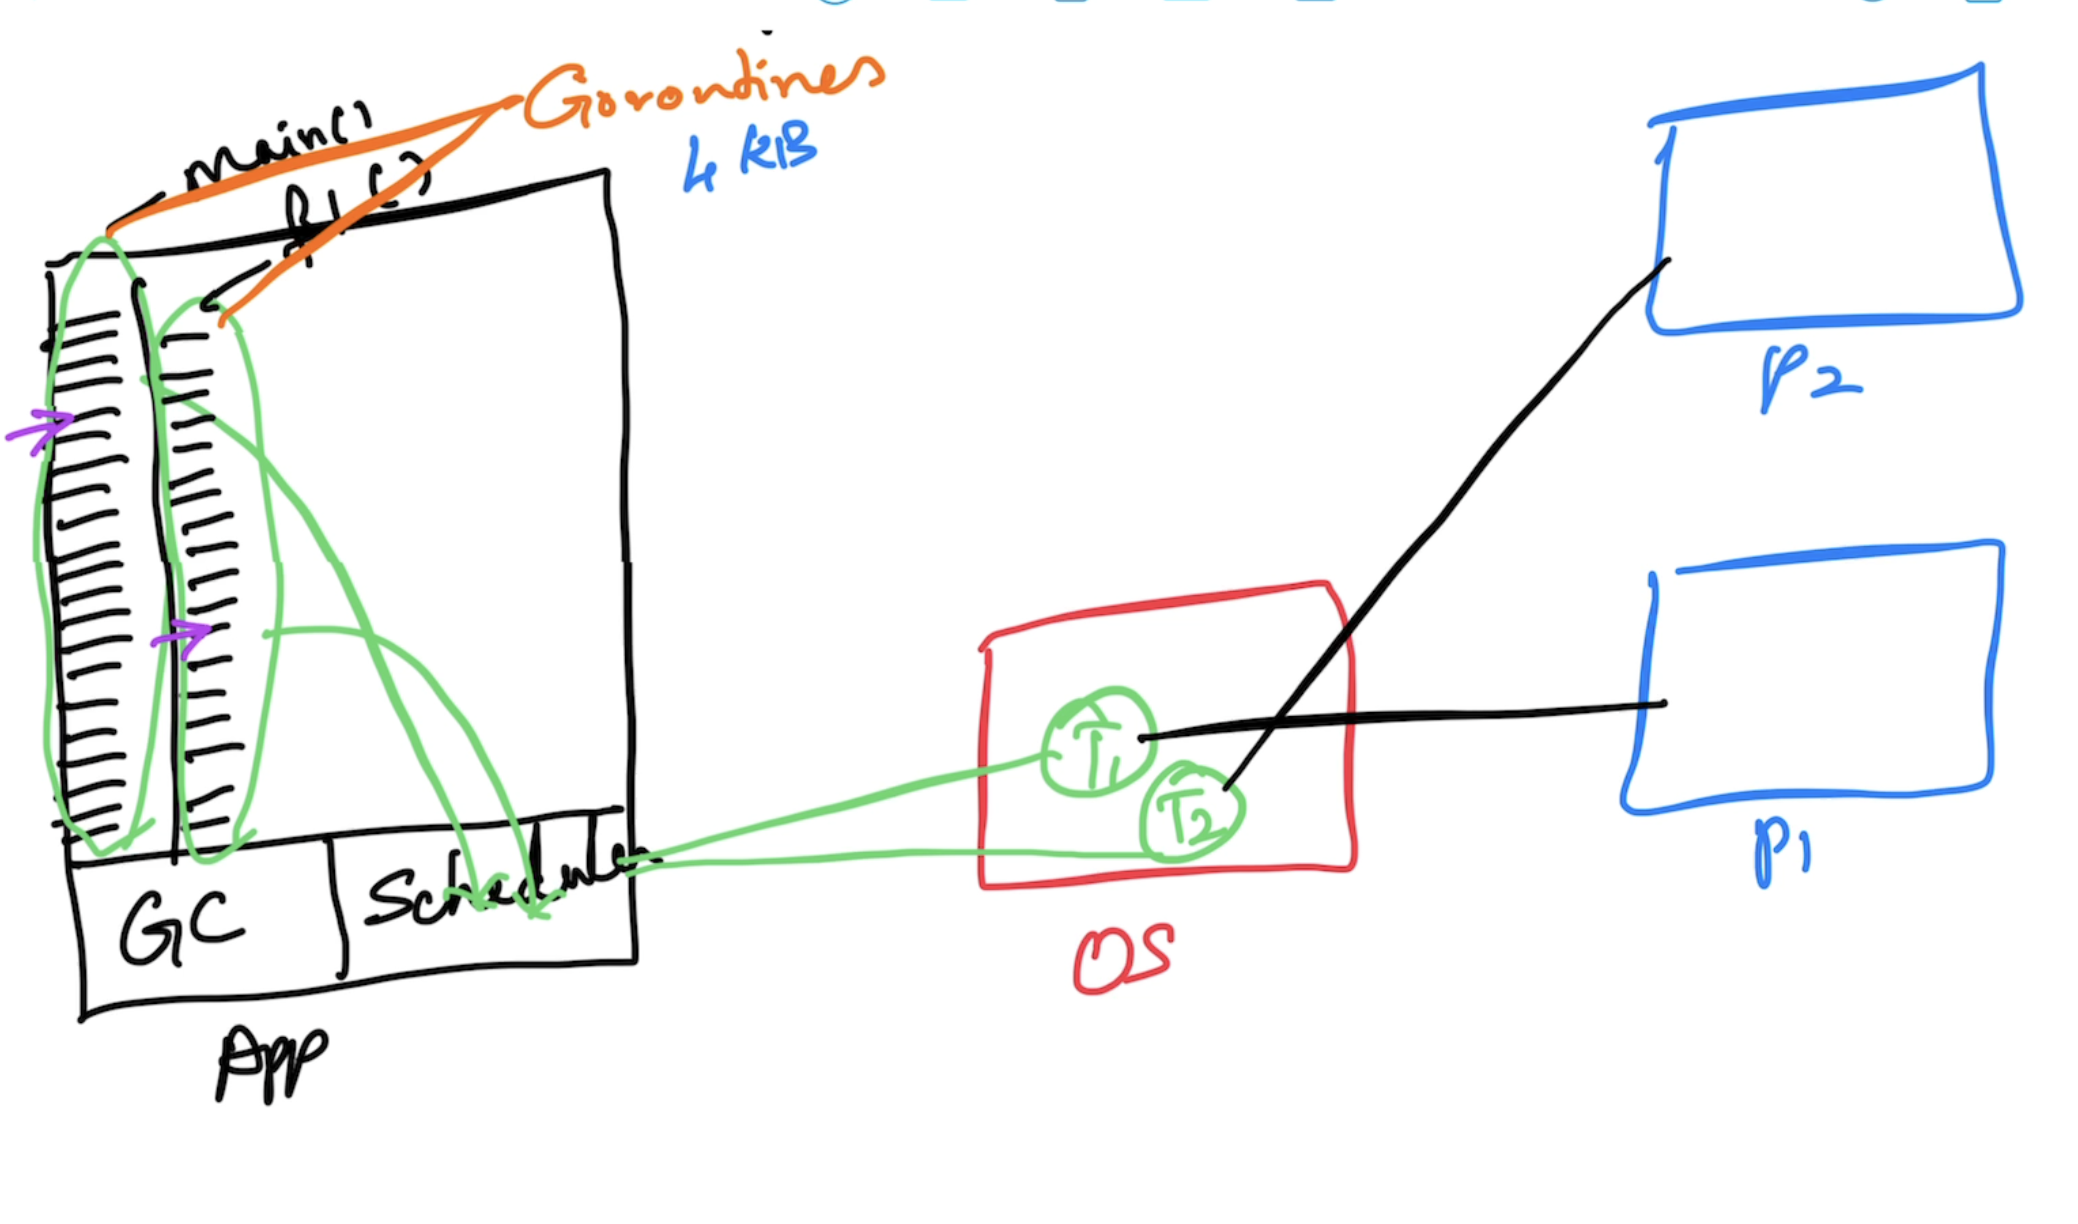 Goroutines
4 KB
main()
f1()
GC
Scheduler
App
T1
T2
OS
P2
P1